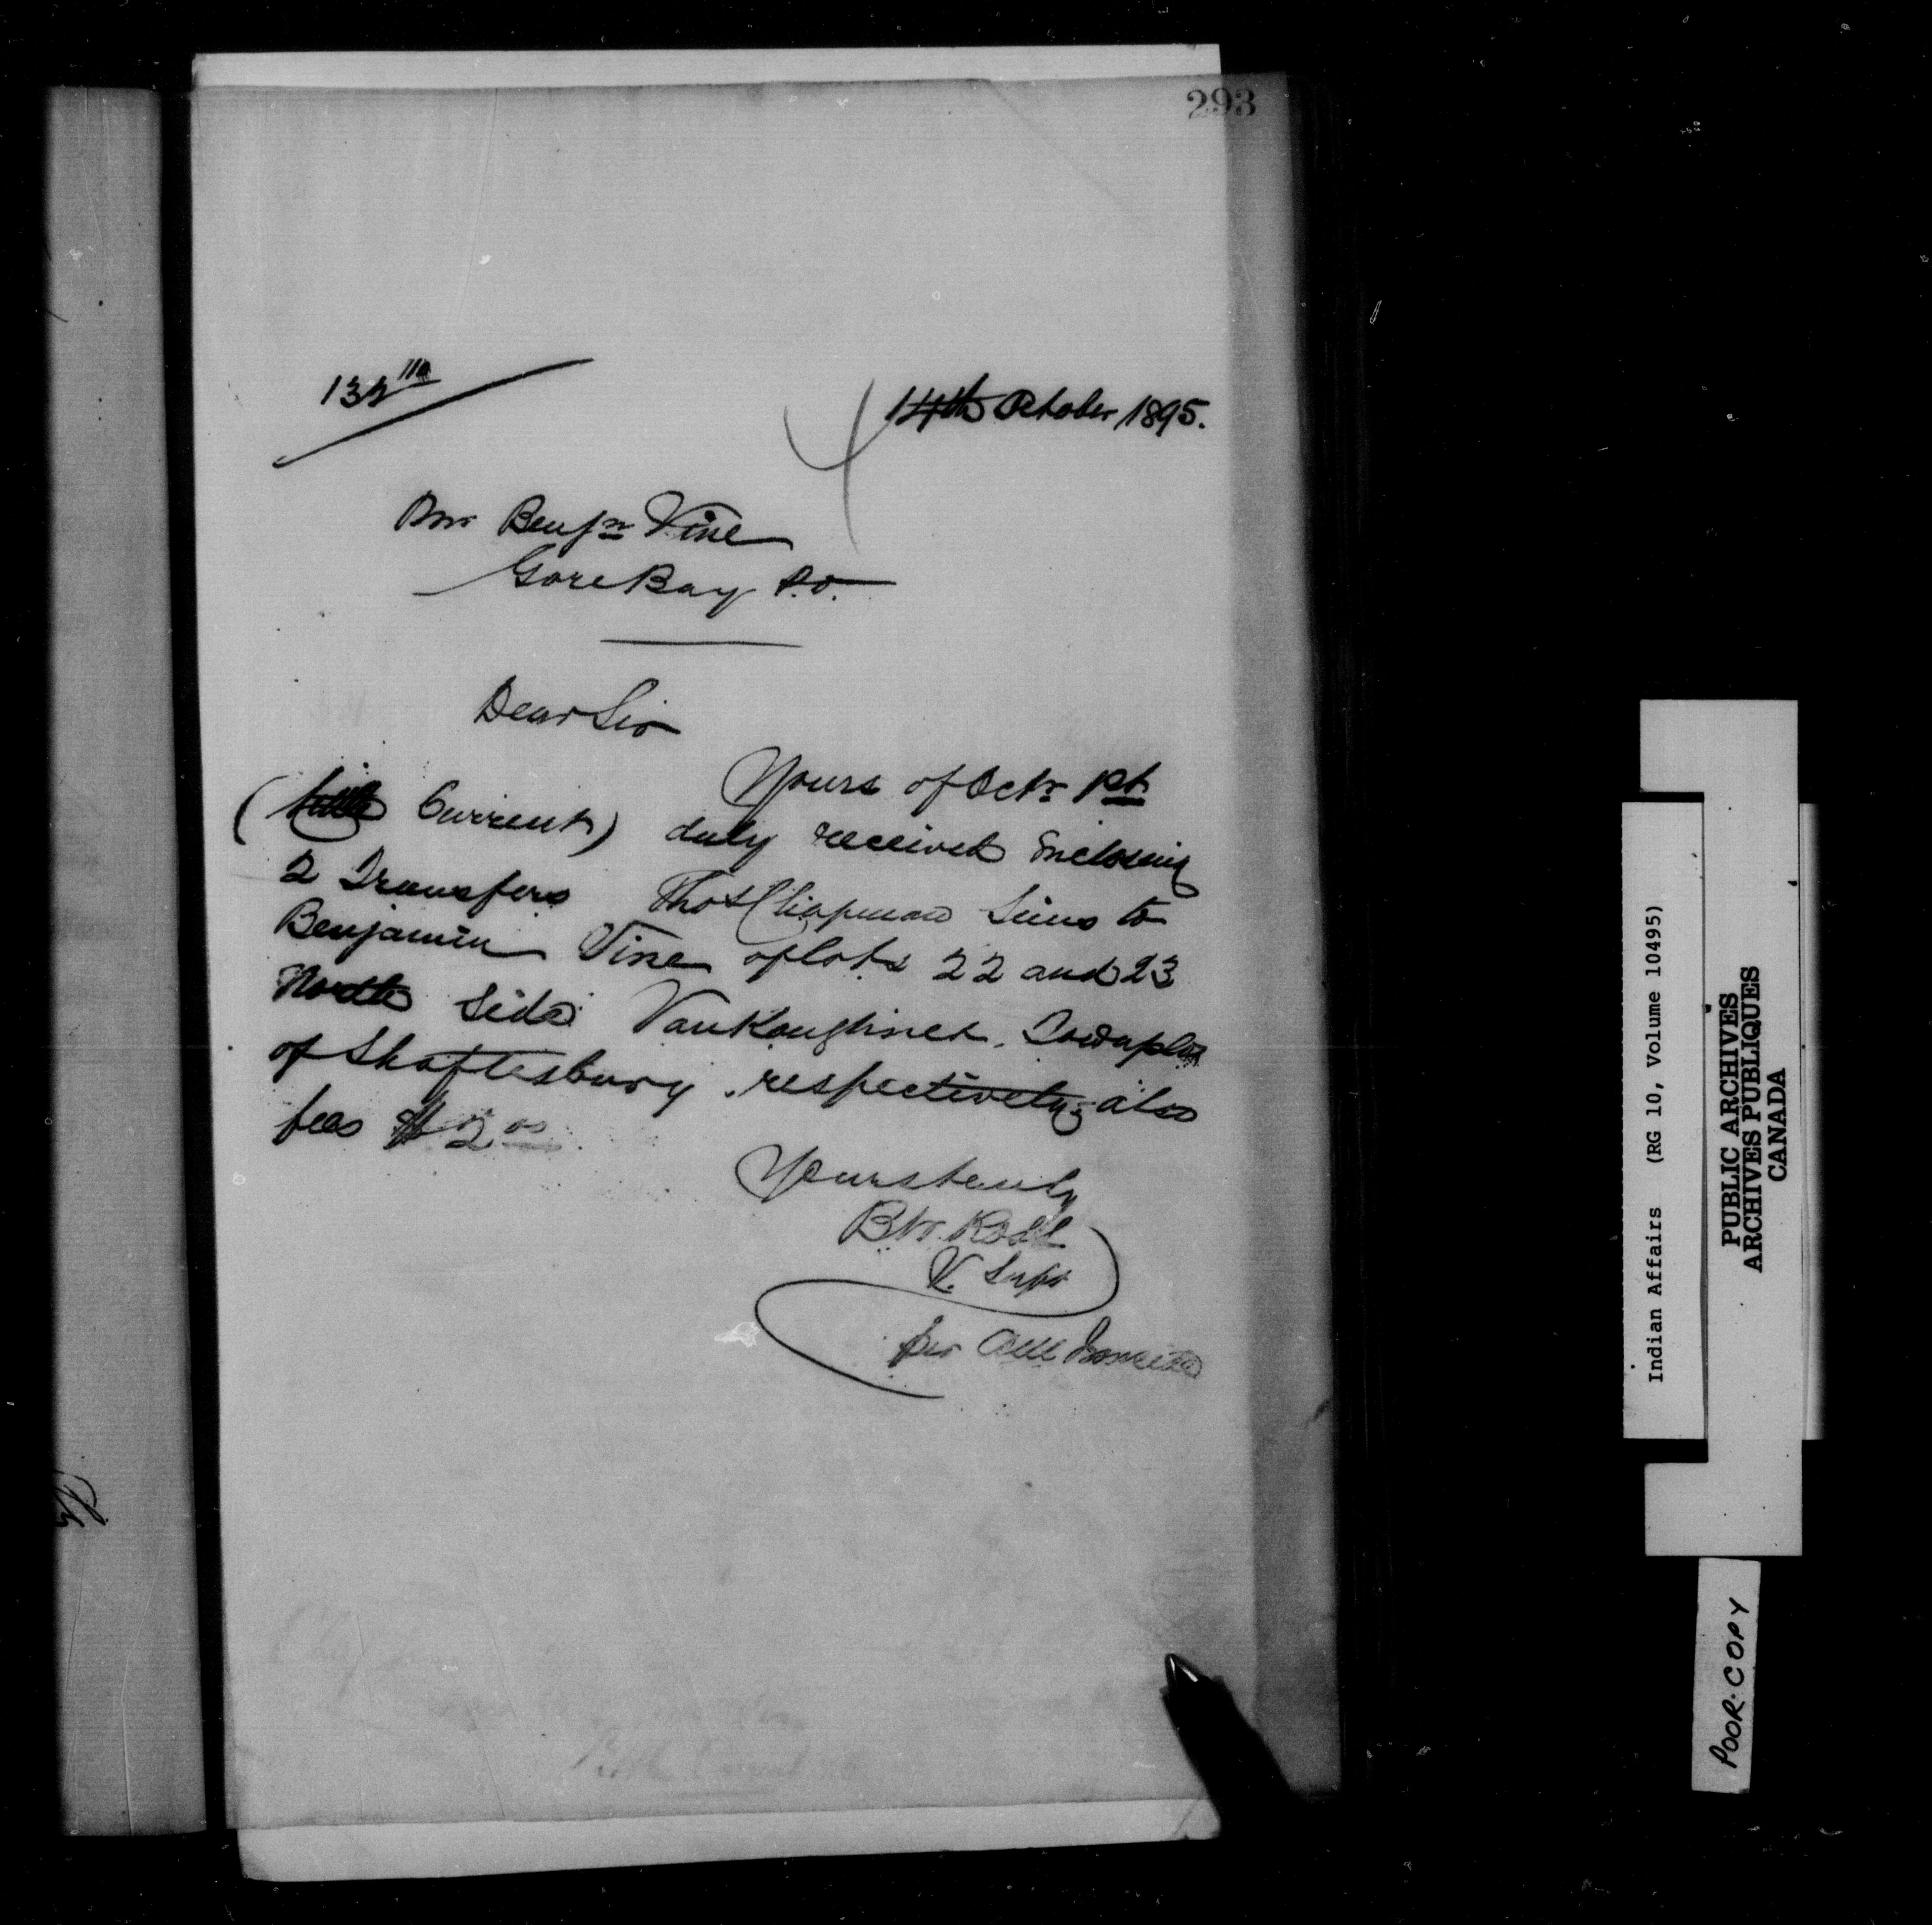 293
14th October 1895.
Mr Benjn Vine
Gore Bay P.O.
Dear Sir
Yours of Octr 1st
(Little Current) duly received Enclosing
2 Transfers Thos Chapman Sims to
Benjamin Vine of lots 22 and 23
North Side VanKoughnet. Townplot
of Shaftesbury. respectively, also
fees $2.00
Yours truly
B W. Ross
V. Supt
per
Indian Affairs (RG 10, Volume 10495)
PUBLIC ARCHIVES
ARCHIVES PUBLIQUES
CANADA
POOR COPY